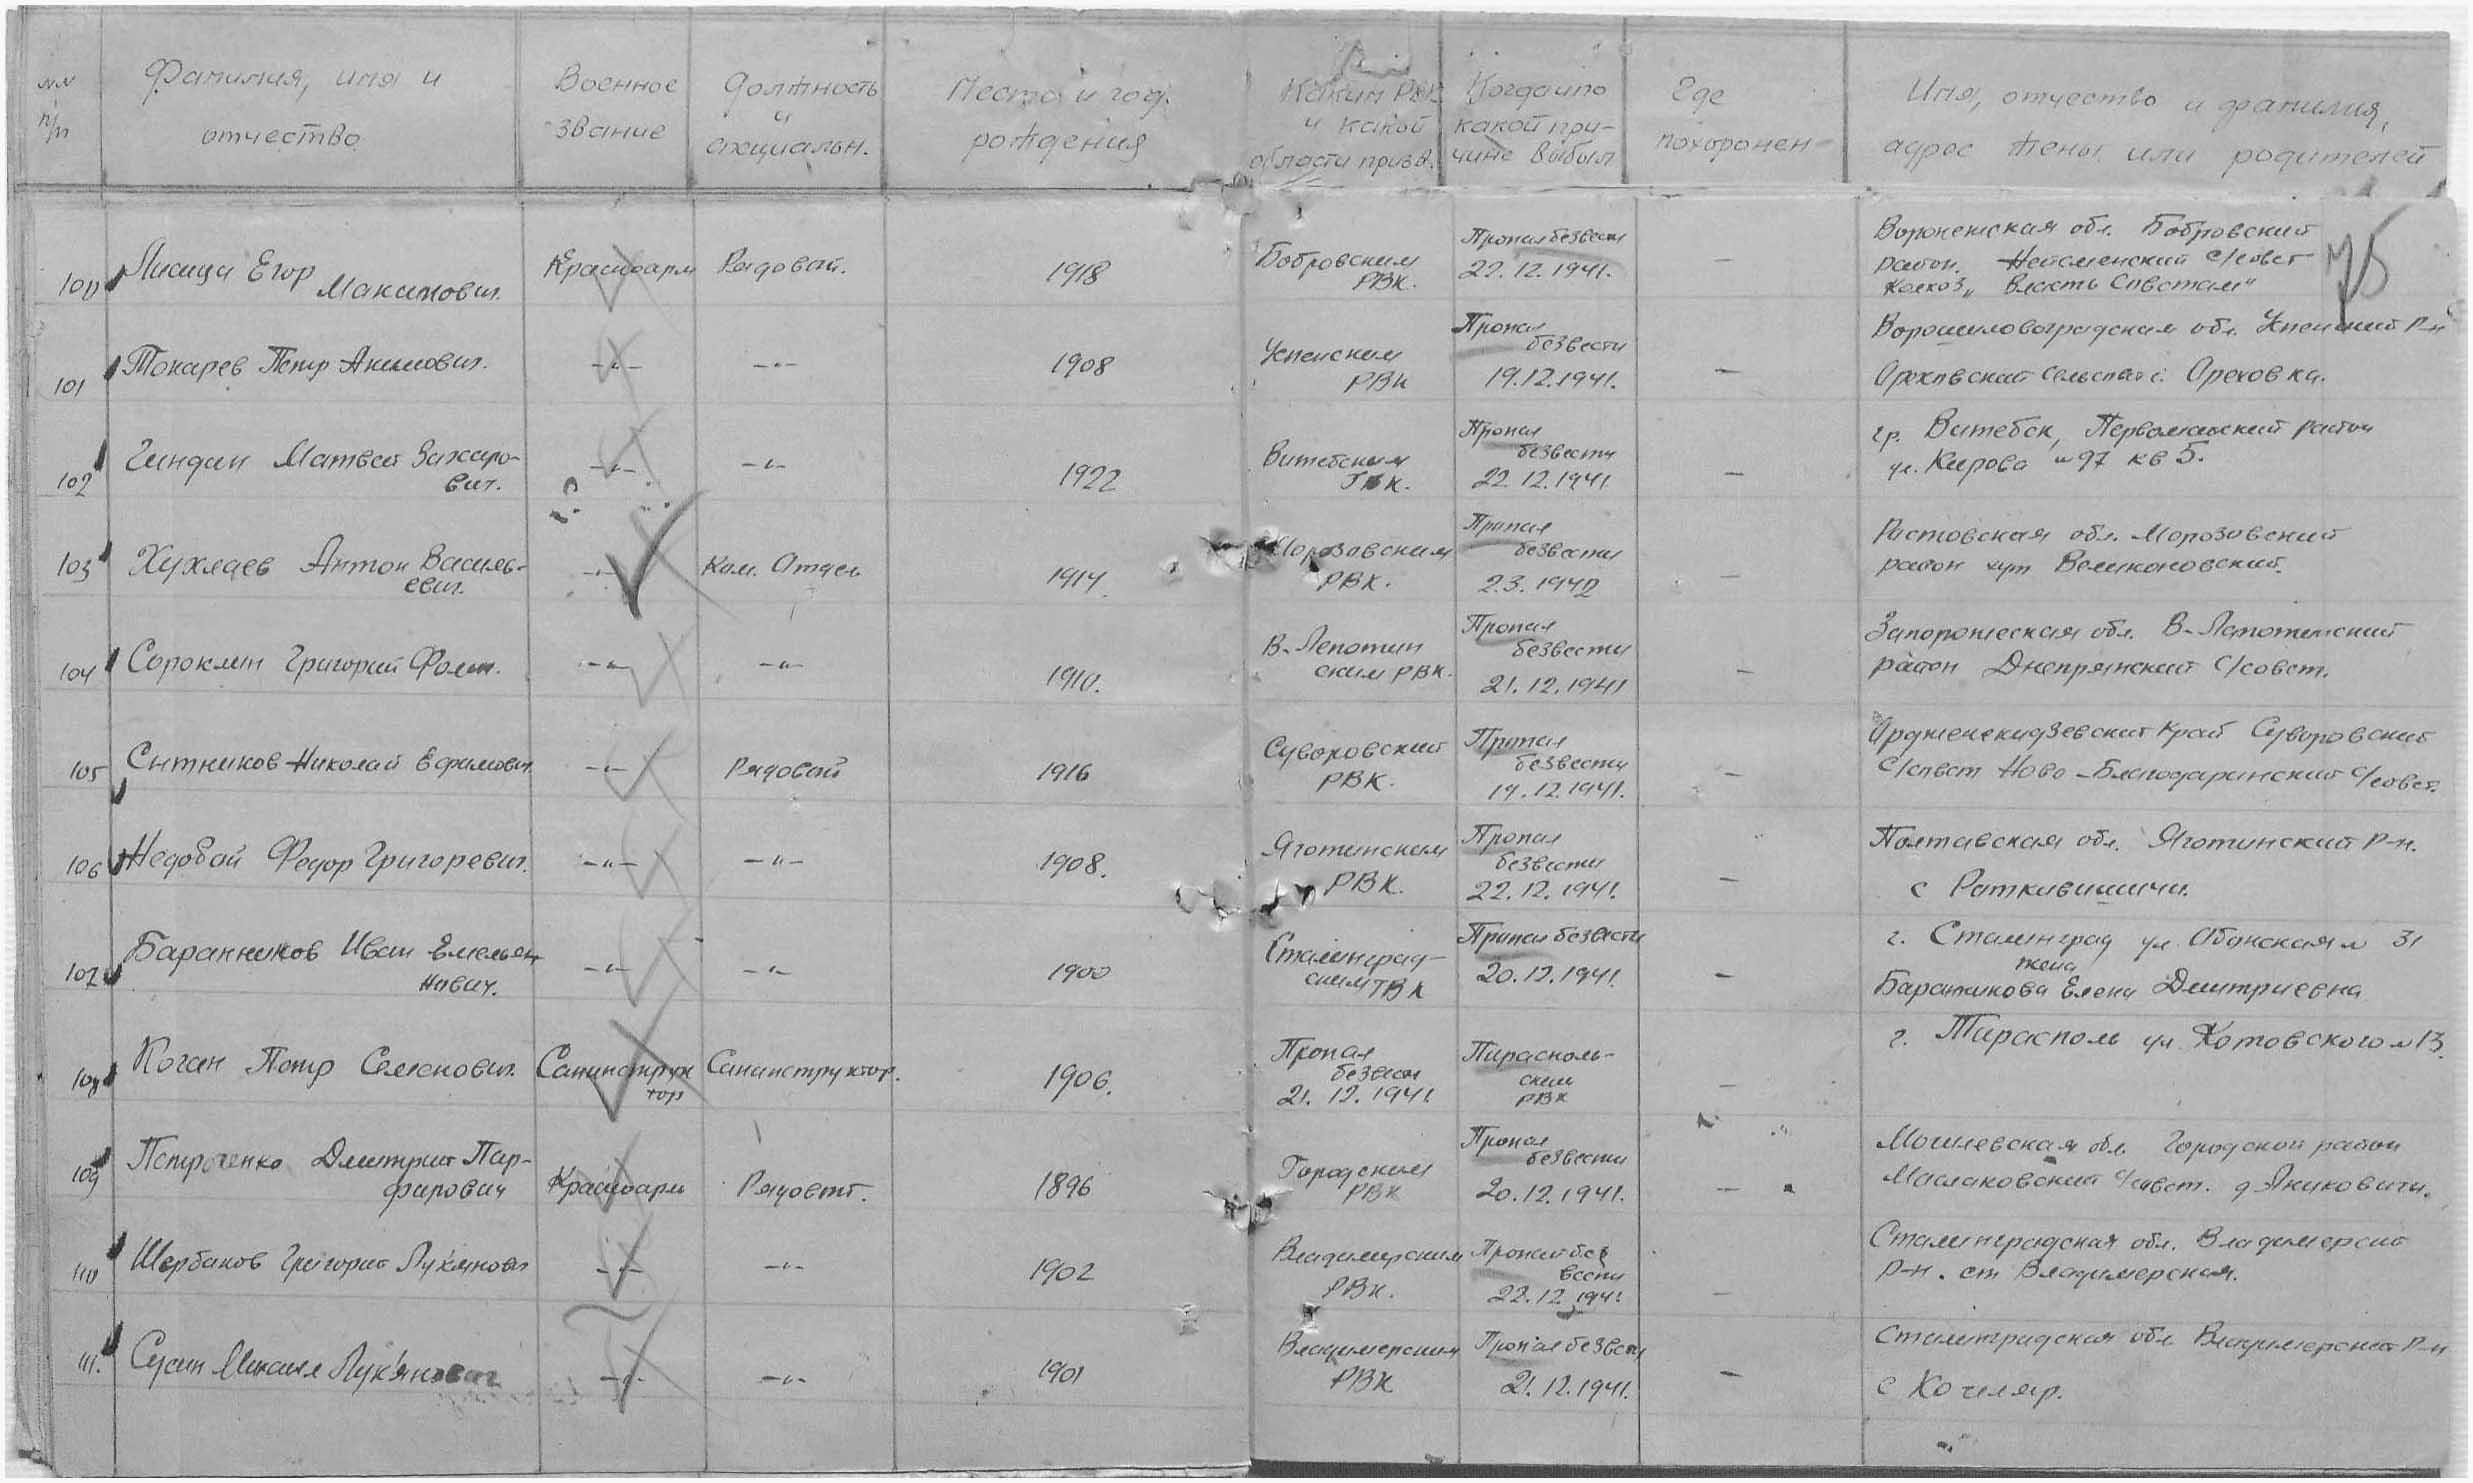 №№ п/п
Фамилия, имя и отчество
Военное звание
Должность и специальн.
Место и год. рождения
Каким РВК и какой области призв.
Когда и по какой причине выбыл
Где похоронен
Имя, отчество и фамилия, адрес жены или родителей
75
100 Лисица Егор Красноарм Рядовой. 1918 Бобровским Пропал безвести – Воронежская обл. Бобровский
Макимович. РВК. 22.12.1941. район. с/совет
колхоз „Власть Советам"
101 Токарев Петр Акимович. -"- -"- 1908 Успенским Пропал – Ворошиловоградская обл. Успенский р-н
РВК безвести
19.12.1941. Ореховский сельсовет с. Ореховка.
102 Гиндин Матвей Захаро- -"- -"- 1922 Витебским Пропал – гр. Витебск, Первомайский район
вич. ГВК. безвести ул. Кирова №97 кв 5.
22.12.1941
103 Хухлаев Антон Василь- -"- Ком. Отдел 1914 Морозовским Пропал – Ростовская обл. Морозовский
евич. РВК. безвести район хут
2.3.1942
104 Сороклин Григорий Фомич. -"- -"- 1910. В-Лепотин Пропал – Запорожеская обл. В-Лапотинский
ским РВК. безвести район Днепрянский с/совет.
21.12.1941
105 Сытников Николай Ефимович -"- Рядовой 1916 Суворовский Пропал – Орджоникидзевский край Суворовский
РВК. безвести с/совет Ново-Благодаринский с/совет.
19.12.1941.
106 Недобой Федор Григоревич. -"- -"- 1908. Яготинским Пропал – Полтавская обл. Яготинский р-н.
РВК. безвести с
22.12.1941.
107 Баранников Иван Емельян -"- -"- 1900 Сталинград- Пропал безвести – г. Сталинград ул. № 31
нович. ским ГВК 20.12.1941. жена
Баранникова Елена Дмитриевна
108 Коган Петр Семенович. Санинструк Санинструктор. 1906. Пропал Тирасполь- – г. Тирасполь ул. Котовского №13.
тор безвести ским
21.12.1941 РВК
109 Петроченко Дмитрий Пар- Красноарм Рядовой. 1896 Городским Пропал – Могилевская обл. Городской район
фирович РВК безвести Маслаковский с/совет. д Якиковичи.
20.12.1941.
110 Щербаков Григорий Лукянович -"- -"- 1902 Владимирским Пропал без – Сталинградская обл. Владимерский
РВК. вести р-н. ст Владимерская.
22.12.1941
111. Сусин Михаил Лук'янович -"- -"- 1901 Владимерским Пропал безвести – Сталинградская обл Владимерский р-н
РВК 21.12.1941. с